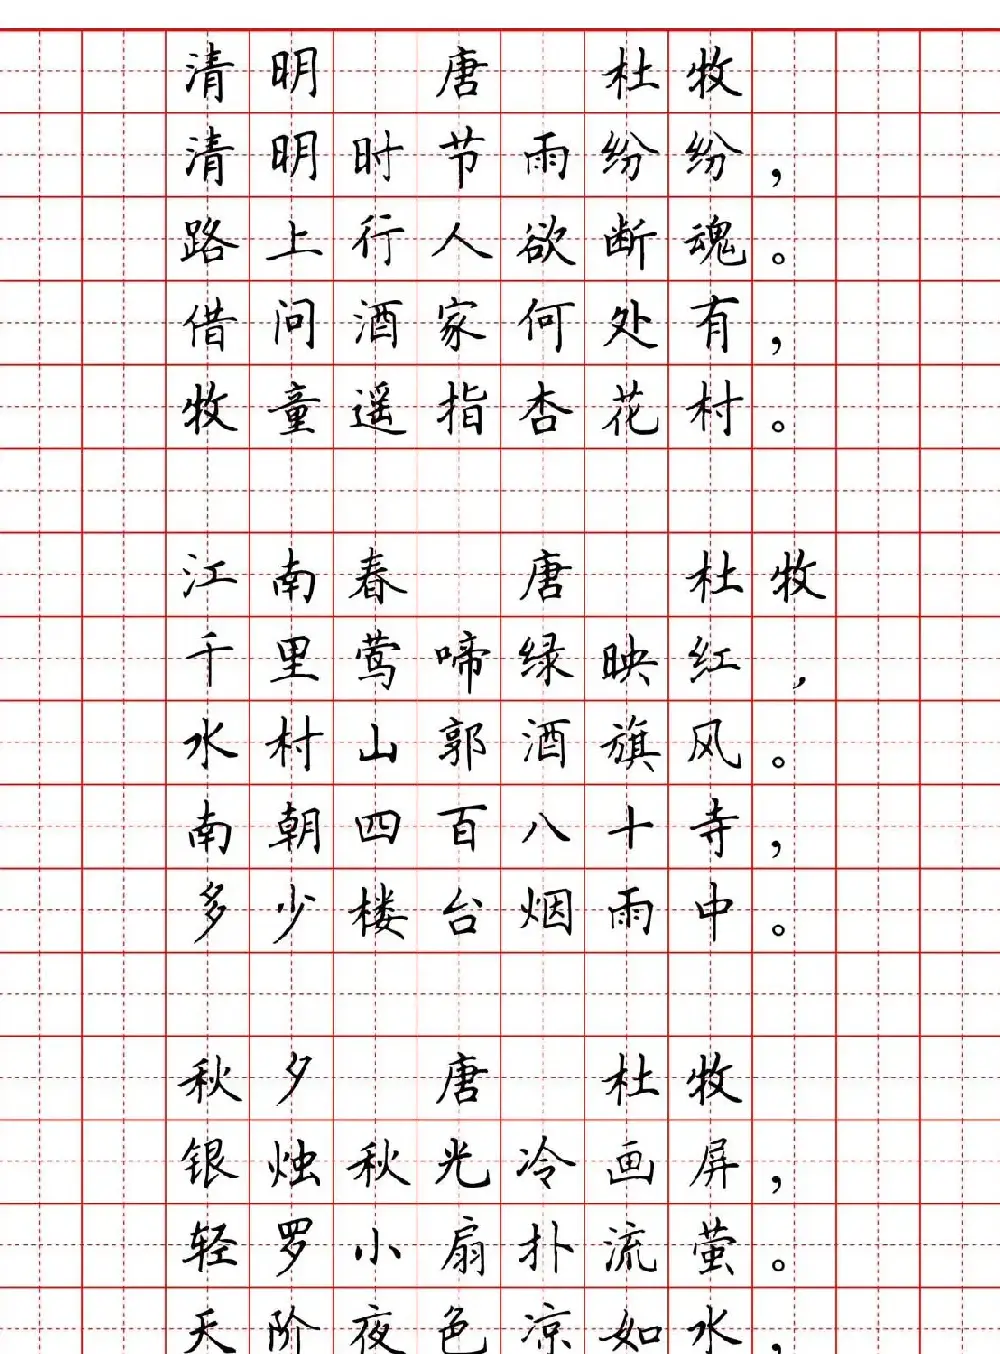 清明 唐 杜牧
清明时节雨纷纷，
路上行人欲断魂。
借问酒家何处有，
牧童遥指杏花村。
江南春 唐 杜牧
千里莺啼绿映红，
水村山郭酒旗风。
南朝四百八十寺，
多少楼台烟雨中。
秋夕 唐 杜牧
银烛秋光冷画屏，
轻罗小扇扑流萤。
天阶夜色凉如水，